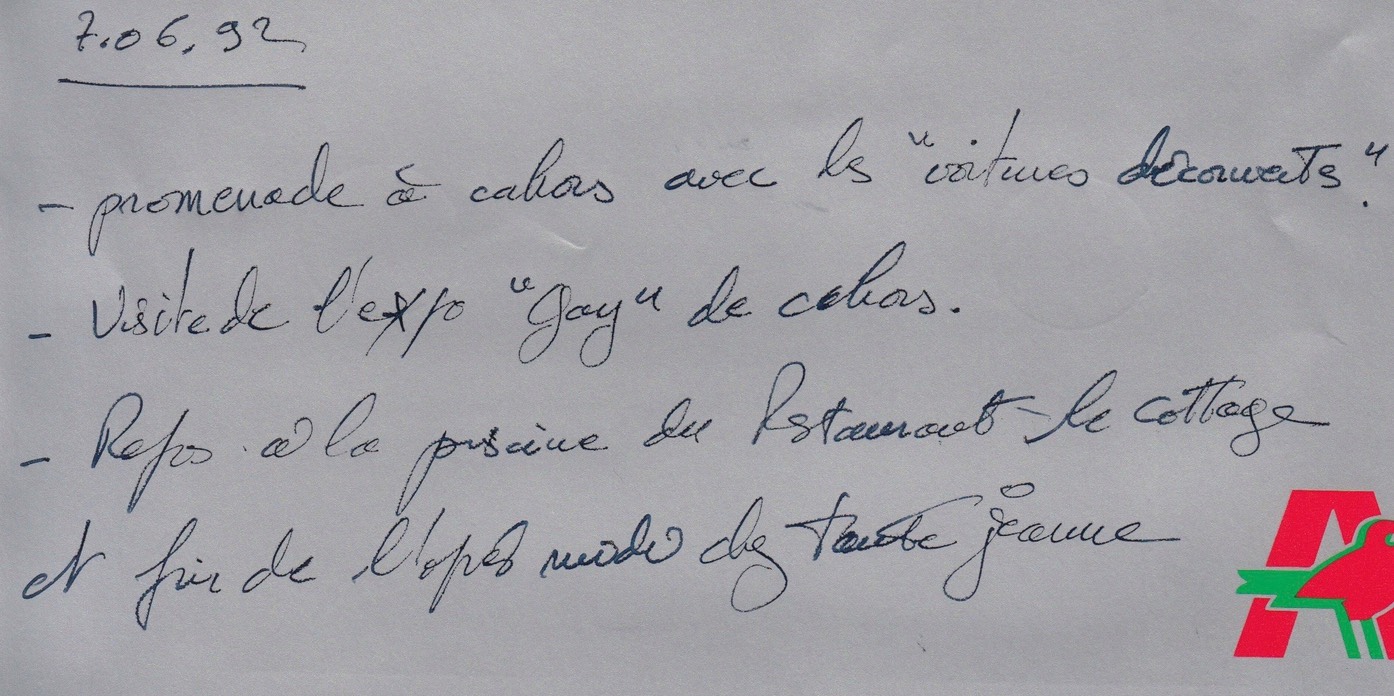 7.06.92
- promenade à cahors avec les "voitures découverts".
- Visite de l'expo "Gay" de cahors.
- Repos à la piscine du Restaurant - le cottage
et fin de l'après midi chez tante jeanne